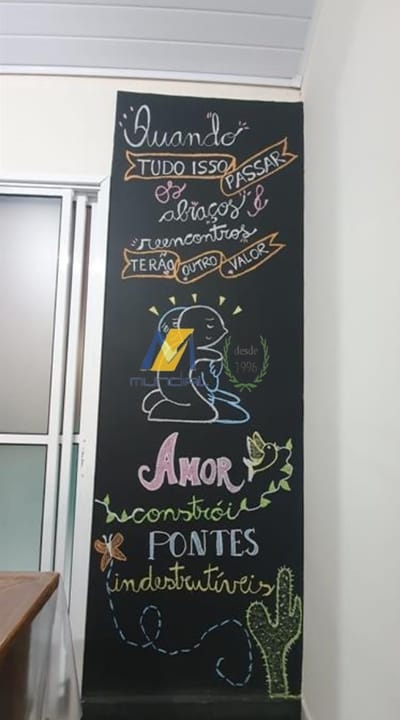 Quando
TUDO ISSO PASSAR
os
abraços &
reencontros
TERÃO OUTRO VALOR
MUNDIAL
desde
1996
AMOR
constrói
PONTES
indestrutíveis